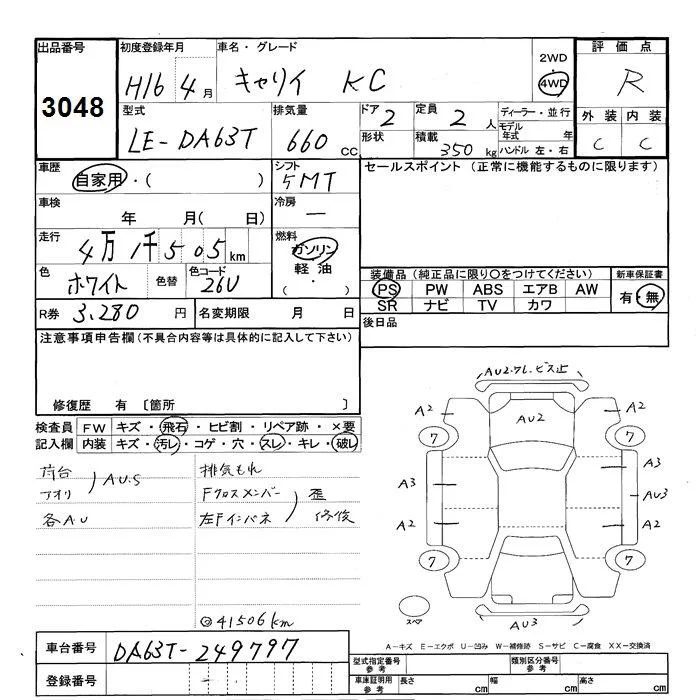 出品番号 初度登録年月 車名・グレード 2WD 評価点
3048 H16 4月 キャリイ KC 4WD R
型式 排気量 ドア 定員 ディーラー・並行 外装 内装
LE-DA63T 660cc 2 2人 モデル年式 年 C C
形状 積載 350kg ハンドル 左・右
車歴 シフト セールスポイント(正常に機能するものに限ります)
自家用・( ) 5MT
車検 年 月( 日) 冷房 ー
走行 4万1千505km 燃料 ガソリン
軽油
( ・ )
色 ホワイト 色替 色コード 26U
装備品(純正品に限り○をつけてください) 新車保証書
PS PW ABS エアB AW 有・無
SR ナビ TV カワ
R券 3,280円 名変期限 月 日 後日品
注意事項申告欄(不具合内容等は具体的に記入して下さい)
修復歴 有 〔箇所 〕
検査員 FW キズ・飛石・ヒビ割・リペア跡・×要
記入欄 内装 キズ・汚レ・コゲ・穴・スレ・キレ・破レ
荷台 AU.S 排気もれ
アオリ Fクロスメンバー 歪
各AU 左Fインパネ 修復
◎41506km
AU2.ワレ.ビス止
A2 AU2 A2
7 7
A3 A3
AU3
A2 A2
7 7
スペア AU3
A-キズ E-エクボ U-凹み W-補修跡 S-サビ C-腐食 XX-交換済
車台番号 DA63T-249797
型式指定番号 参考 類別区分番号 参考
登録番号 - ・
車庫証明用 参考 長さ cm 幅 cm 高さ cm